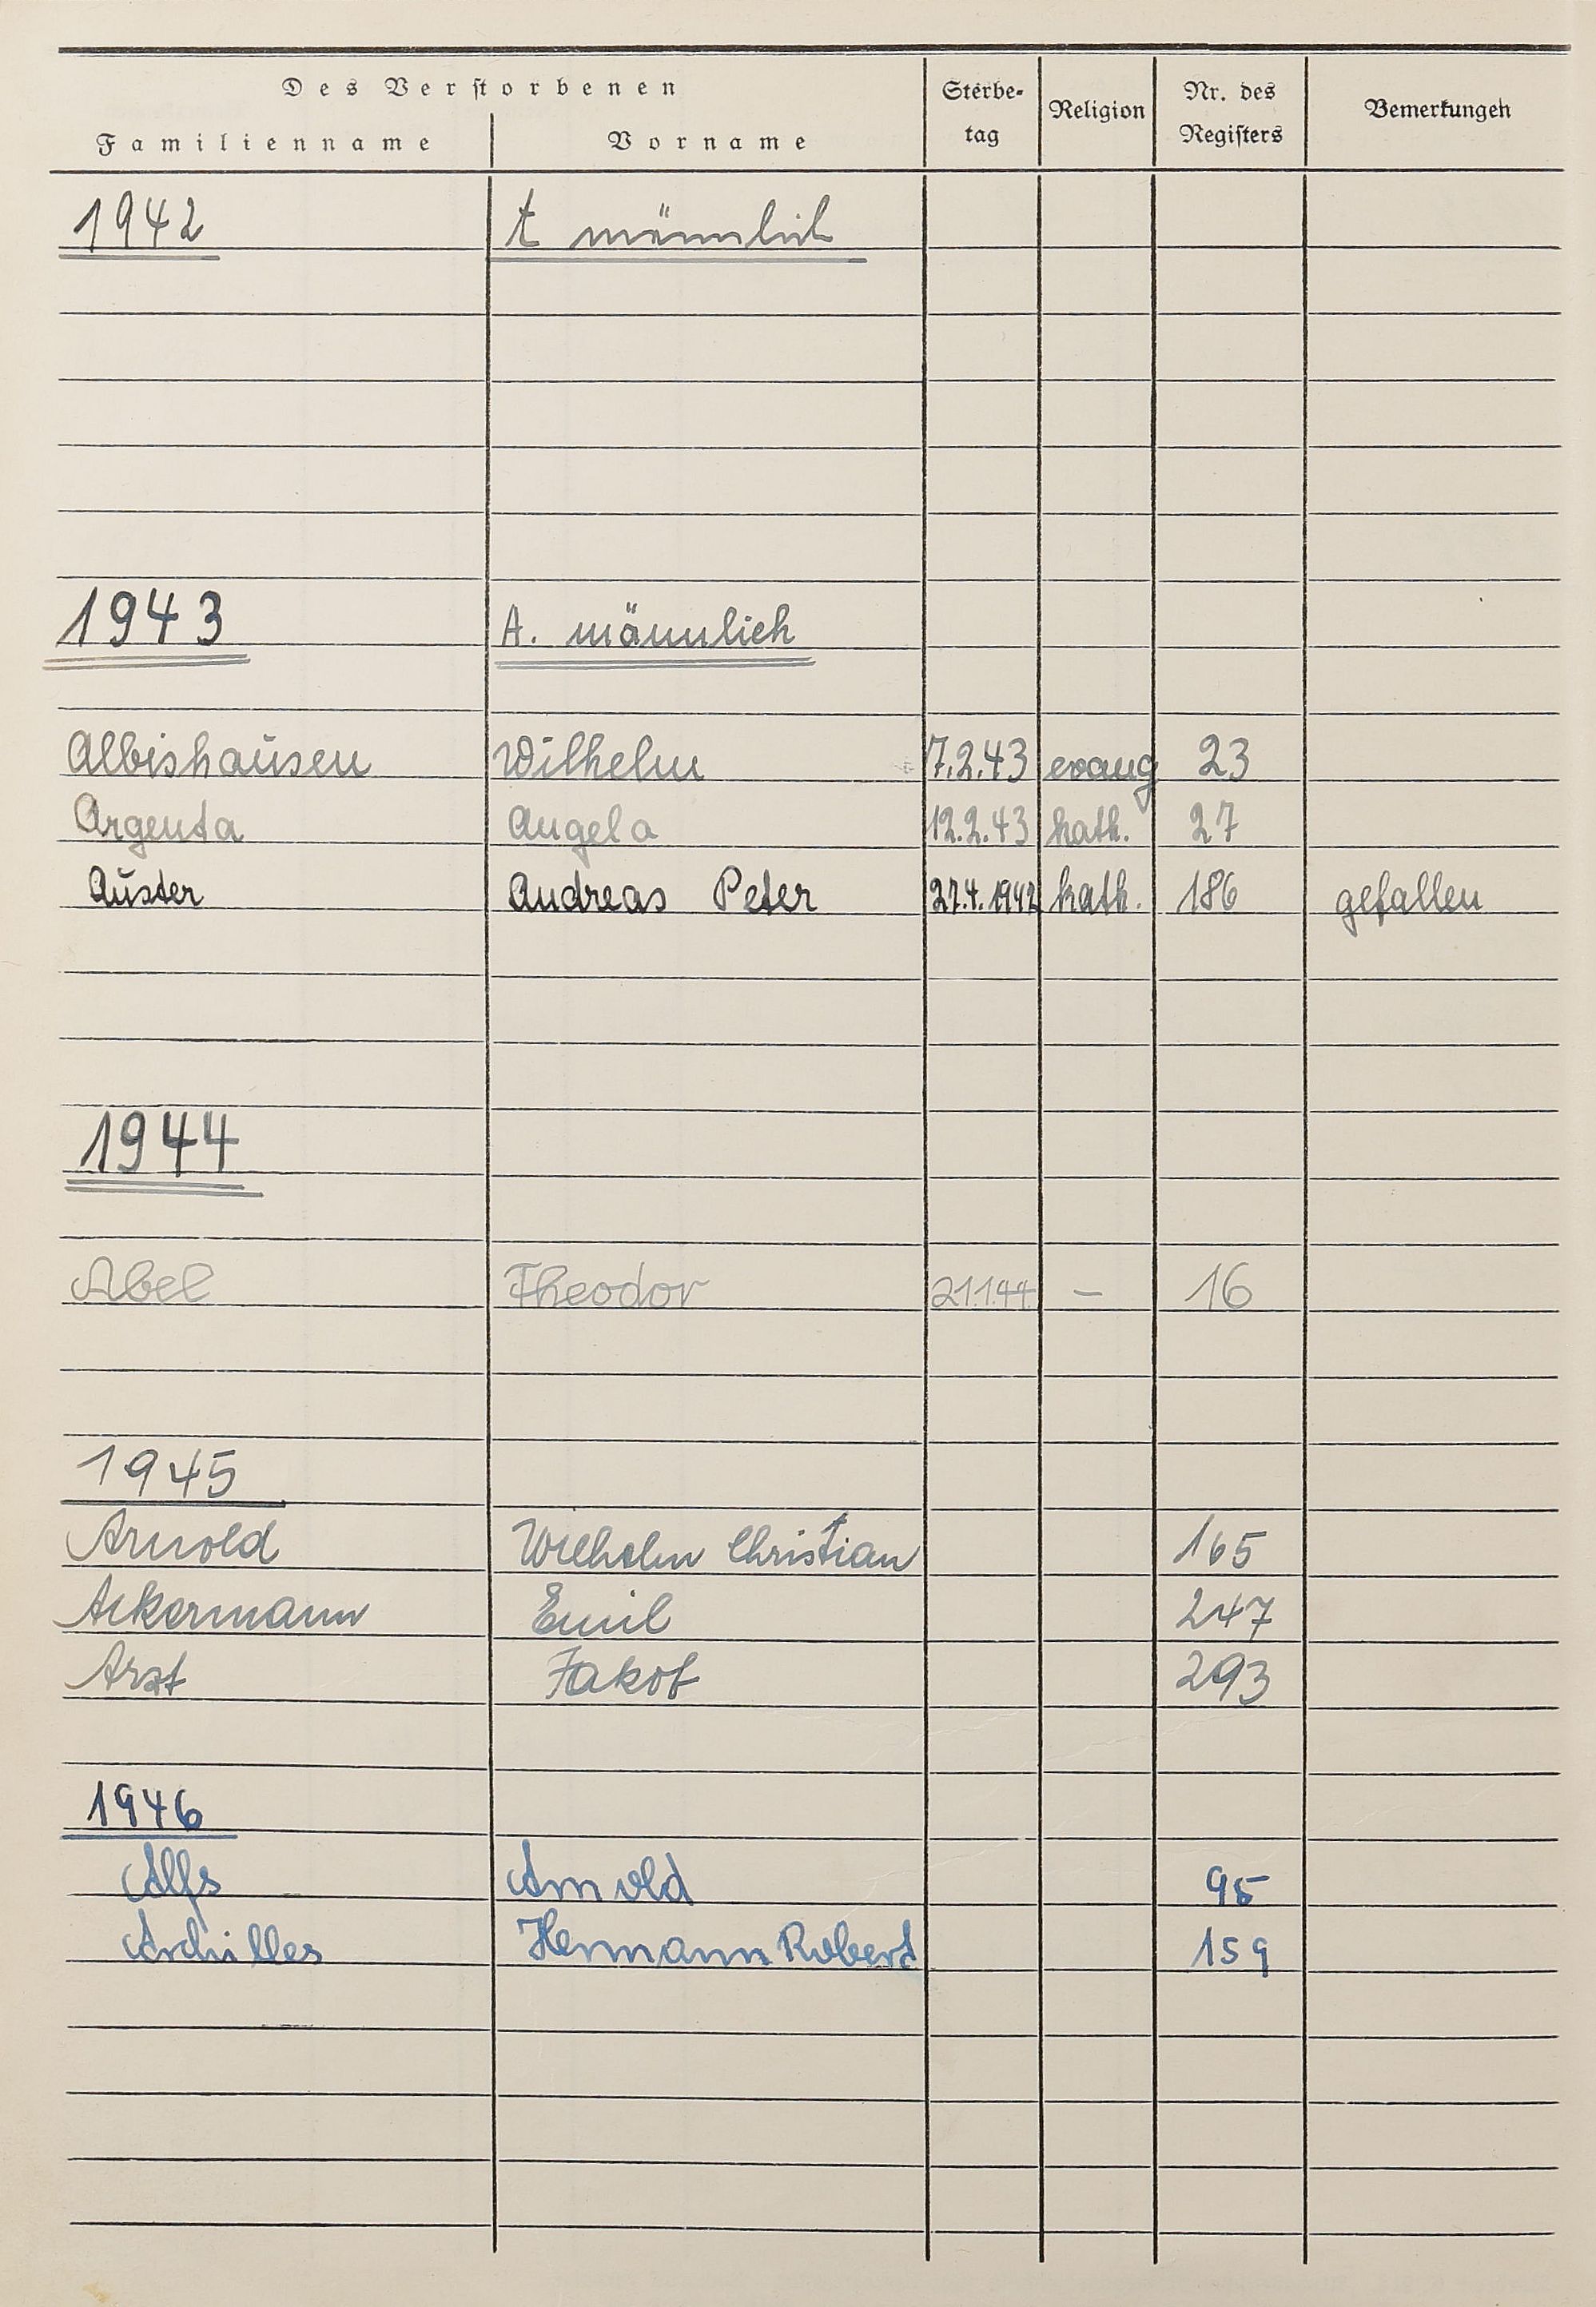 Des Verstorbenen
Familienname Vorname Sterbe- tag Religion Nr. des Registers Bemerkungen
1942 A männlich
1943 A. männlich
Albishausen Wilhelm 7.2.43 evang 23
Argenta Angela 12.2.43 kath. 27
Auster Andreas Peter 27.4.1942 kath. 186 gefallen
1944
Abel Theodor 21.1.44. — 16
1945
Arnold Wilhelm Christian 165
Ackermann Emil 247
Arzt Jakob 293
1946
Alfs Arnold 95
Achilles Hermann Robert 159